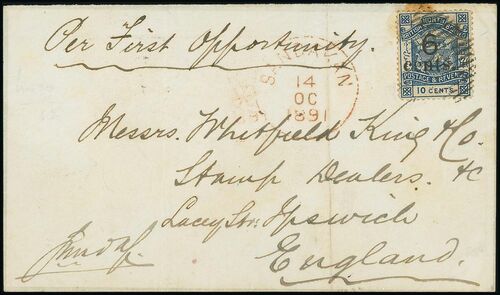 Per First Opportunity.
BRITISH NORTH BORNEO
6
cents.
POSTAGE & REVENUE
10 CENTS
SANDAKAN
14
OC
1891
Messrs. Whitfield King & Co.
Stamp Dealers. &c
Lacey Str. Ipswich
England.